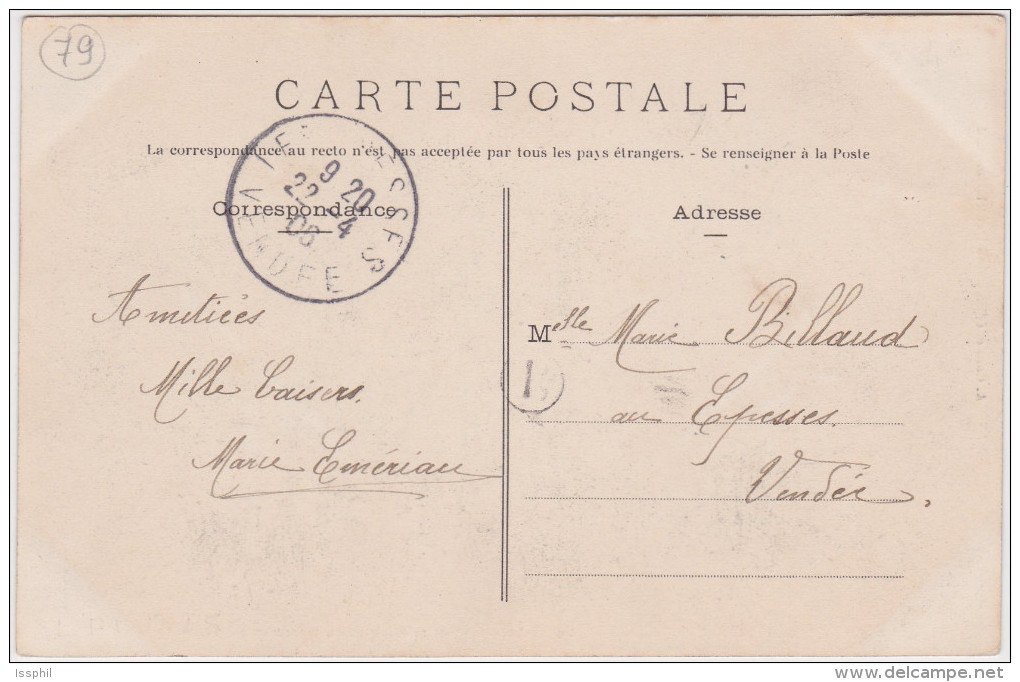 79
CARTE POSTALE
La correspondance au recto n'est pas acceptée par tous les pays étrangers. - Se renseigner à la Poste
9 20
22 - 4
06
VENDEE
Correspondance
Adresse
Amitiées
Mille baisers.
Marie Emériau
Melle Marie Billaud
au Epesses.
Vendée.
Issphil
www.delcampe.net